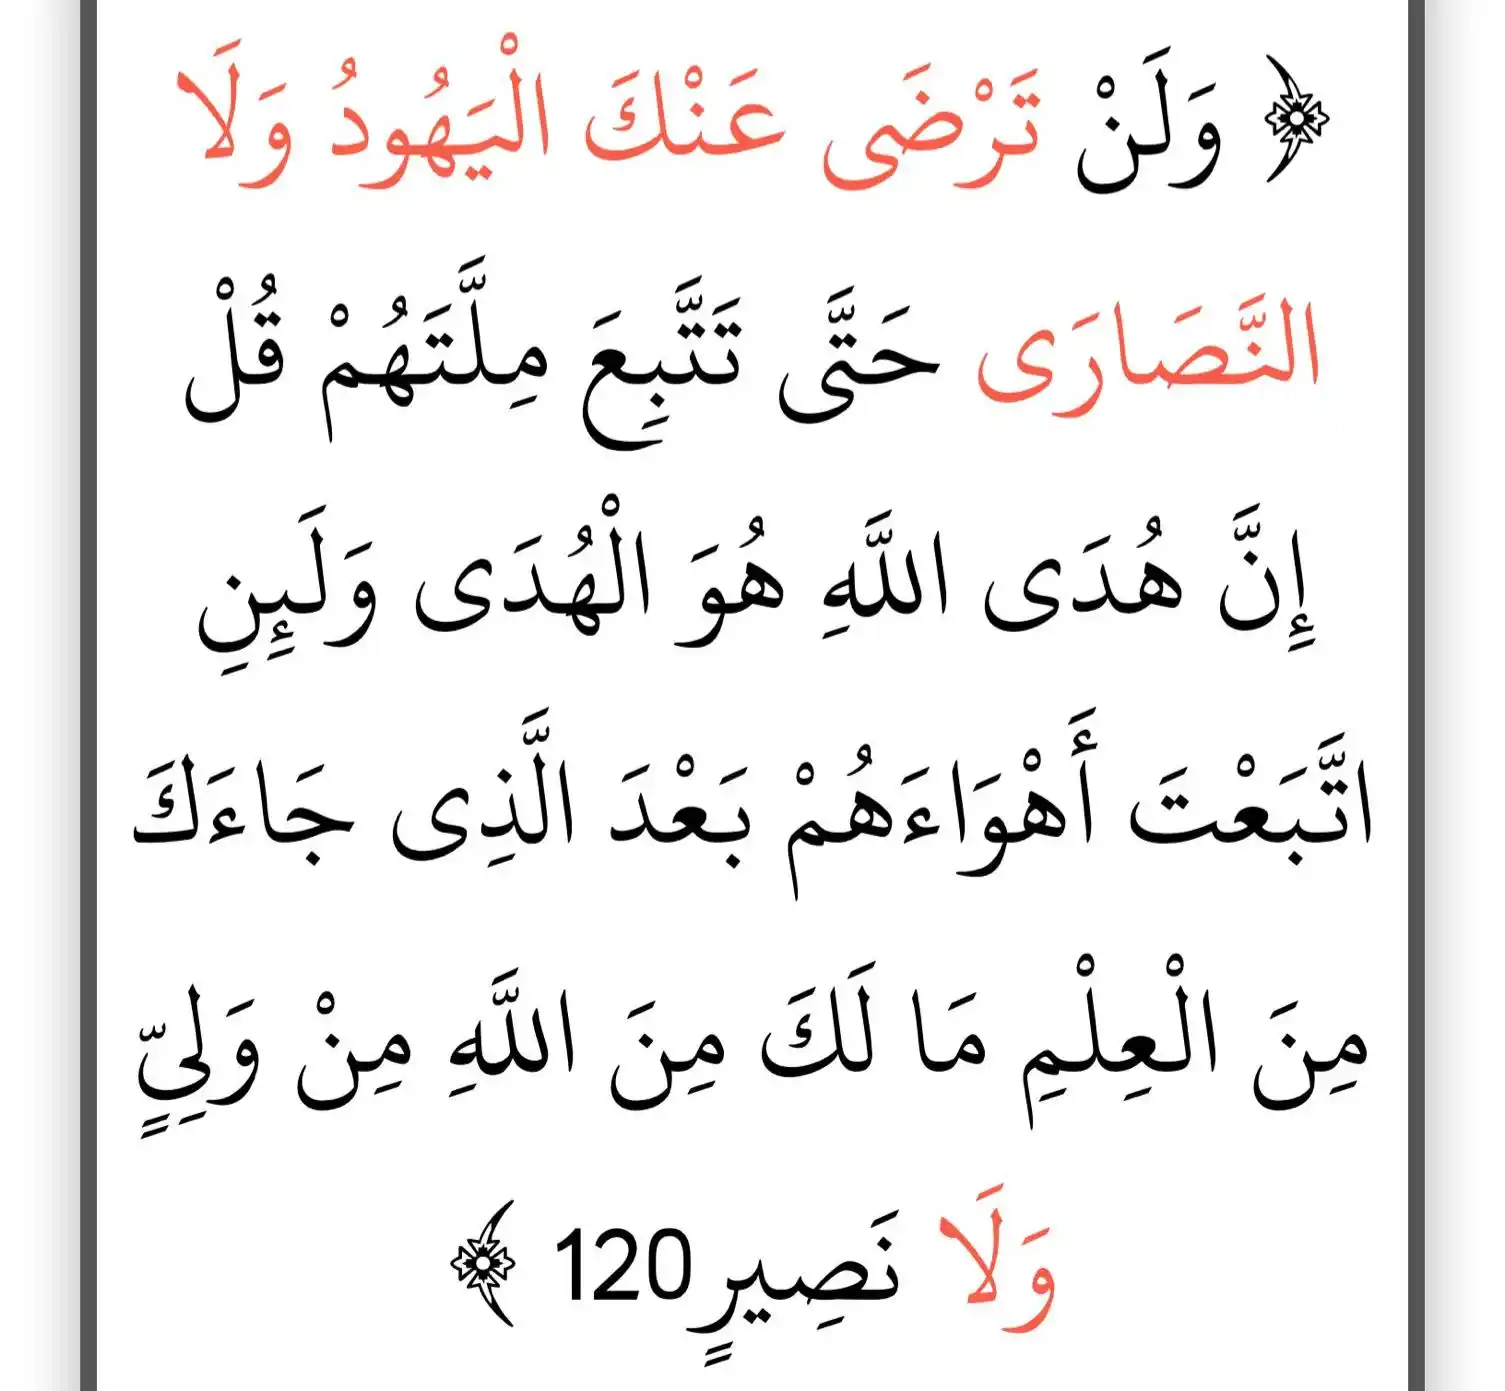 ﴿ وَلَنْ تَرْضَى عَنْكَ الْيَهُودُ وَلَا
النَّصَارَى حَتَّى تَتَّبِعَ مِلَّتَهُمْ قُلْ
إِنَّ هُدَى اللَّهِ هُوَ الْهُدَى وَلَئِنِ
اتَّبَعْتَ أَهْوَاءَهُمْ بَعْدَ الَّذِى جَاءَكَ
مِنَ الْعِلْمِ مَا لَكَ مِنَ اللَّهِ مِنْ وَلِىٍّ
وَلَا نَصِيرٍ120 ﴾